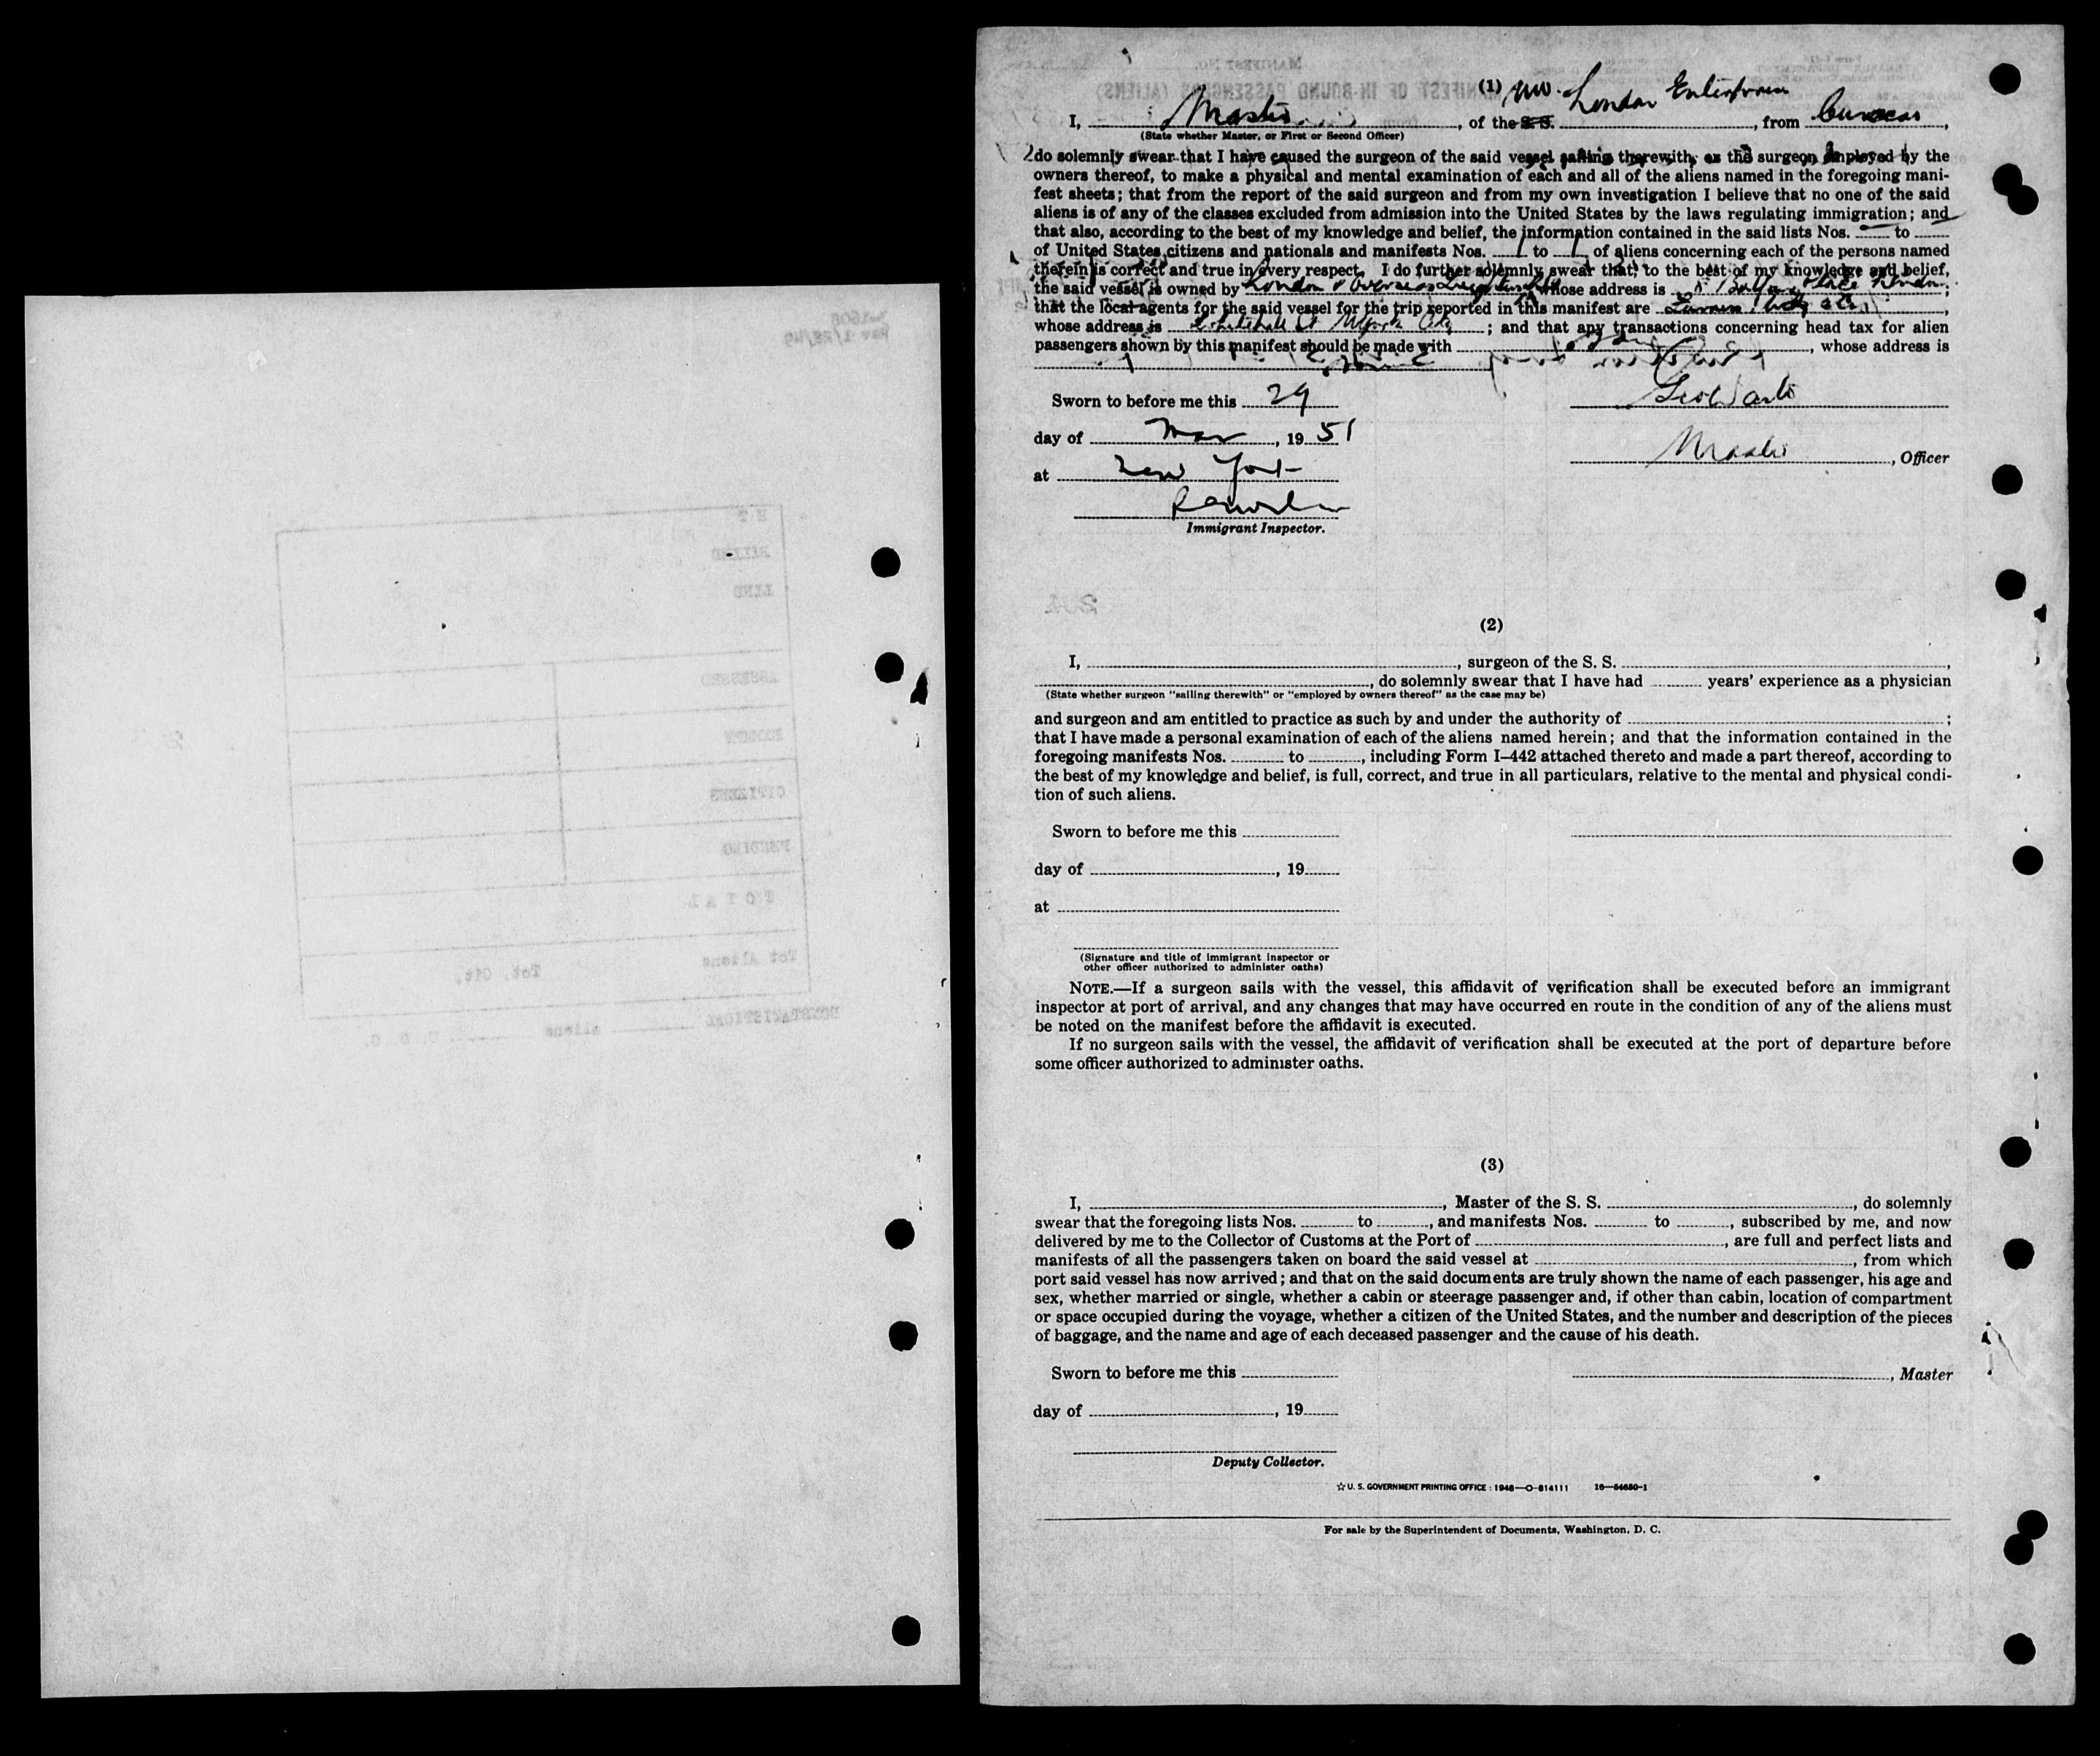 (1) MV. London Enterprise
I, Master, of the S. S. , from Curacao,
(State whether Master, or First or Second Officer)
do solemnly swear that I have caused the surgeon of the said vessel sailing therewith, or the surgeon employed by the
owners thereof, to make a physical and mental examination of each and all of the aliens named in the foregoing mani-
fest sheets; that from the report of the said surgeon and from my own investigation I believe that no one of the said
aliens is of any of the classes excluded from admission into the United States by the laws regulating immigration; and
that also, according to the best of my knowledge and belief, the information contained in the said lists Nos. to
of United States citizens and nationals and manifests Nos. 1 to 1 of aliens concerning each of the persons named
therein is correct and true in every respect. I do further solemnly swear that, to the best of my knowledge and belief,
the said vessel is owned by London & Overseas whose address is Place London;
that the local agents for the said vessel for the trip reported in this manifest are ,
whose address is Whitehall St New York City; and that any transactions concerning head tax for alien
passengers shown by this manifest should be made with , whose address is
Sworn to before me this 29
day of Mar, 1951
Master, Officer
at New York
Immigrant Inspector.
(2)
I, , surgeon of the S. S. ,
, do solemnly swear that I have had years' experience as a physician
(State whether surgeon "sailing therewith" or "employed by owners thereof" as the case may be)
and surgeon and am entitled to practice as such by and under the authority of ;
that I have made a personal examination of each of the aliens named herein; and that the information contained in the
foregoing manifests Nos. to , including Form I-442 attached thereto and made a part thereof, according to
the best of my knowledge and belief, is full, correct, and true in all particulars, relative to the mental and physical condi-
tion of such aliens.
Sworn to before me this
day of , 19
at
(Signature and title of immigrant inspector or
other officer authorized to administer oaths)
NOTE.—If a surgeon sails with the vessel, this affidavit of verification shall be executed before an immigrant
inspector at port of arrival, and any changes that may have occurred en route in the condition of any of the aliens must
be noted on the manifest before the affidavit is executed.
If no surgeon sails with the vessel, the affidavit of verification shall be executed at the port of departure before
some officer authorized to administer oaths.
(3)
I, , Master of the S. S. , do solemnly
swear that the foregoing lists Nos. to , and manifests Nos. to , subscribed by me, and now
delivered by me to the Collector of Customs at the Port of , are full and perfect lists and
manifests of all the passengers taken on board the said vessel at , from which
port said vessel has now arrived; and that on the said documents are truly shown the name of each passenger, his age and
sex, whether married or single, whether a cabin or steerage passenger and, if other than cabin, location of compartment
or space occupied during the voyage, whether a citizen of the United States, and the number and description of the pieces
of baggage, and the name and age of each deceased passenger and the cause of his death.
Sworn to before me this
, Master
day of , 19
Deputy Collector.
☆ U. S. GOVERNMENT PRINTING OFFICE : 1948—O-814111 16—54680-1
For sale by the Superintendent of Documents, Washington, D. C.